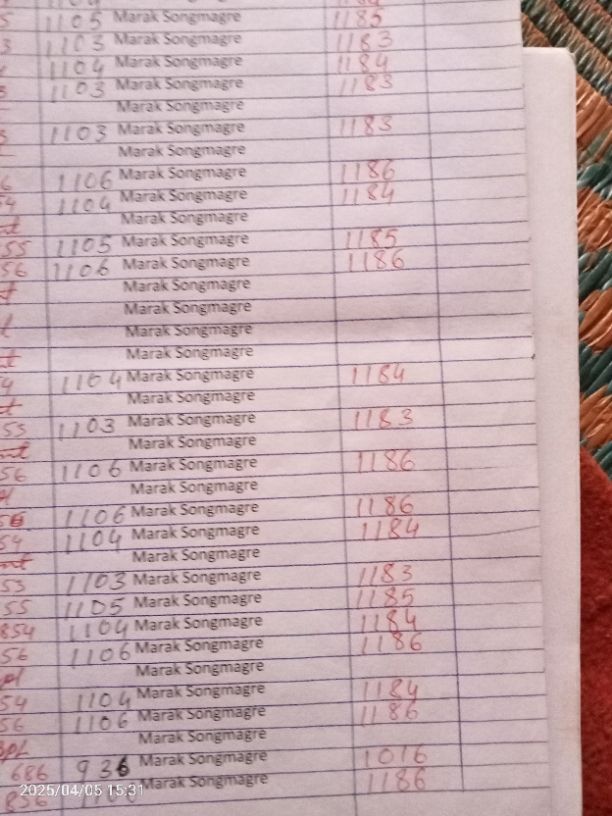 1105 Marak Songmagre 1185
3 1103 Marak Songmagre 1183
1104 Marak Songmagre 1184
1103 Marak Songmagre 1183
Marak Songmagre
1103 Marak Songmagre 1183
Marak Songmagre
6 1106 Marak Songmagre 1186
54 1104 Marak Songmagre 1184
Marak Songmagre
55 1105 Marak Songmagre 1185
56 1106 Marak Songmagre 1186
Marak Songmagre
Marak Songmagre
Marak Songmagre
Marak Songmagre
4 1104 Marak Songmagre 1184
Marak Songmagre
53 1103 Marak Songmagre 1183
Marak Songmagre
56 1106 Marak Songmagre 1186
Marak Songmagre
56 1106 Marak Songmagre 1186
54 1104 Marak Songmagre 1184
Marak Songmagre
53 1103 Marak Songmagre 1183
55 1105 Marak Songmagre 1185
854 1104 Marak Songmagre 1184
56 1106 Marak Songmagre 1186
Marak Songmagre
54 1104 Marak Songmagre 1184
56 1106 Marak Songmagre 1186
Marak Songmagre
686 936 Marak Songmagre 1016
856 Marak Songmagre 1186
2025/04/05 15:31